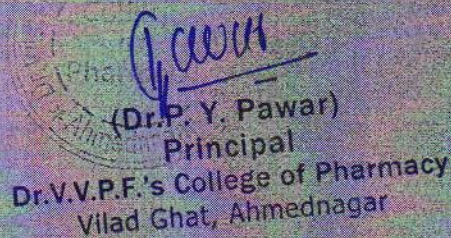 (Dr.P. Y. Pawar)
Principal
Dr.V.V.P.F.'s College of Pharmacy
Vilad Ghat, Ahmednagar